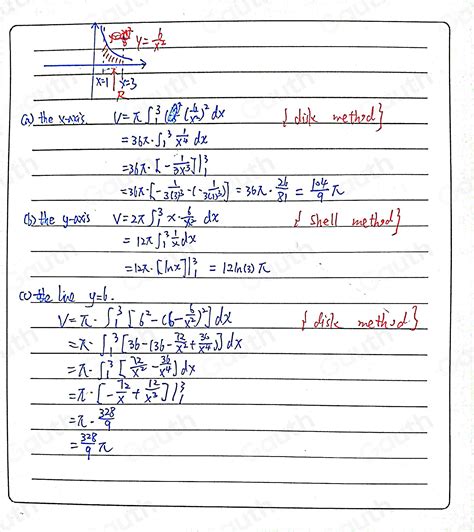 y=6/x²
x=1 x=3
R
(a) the x-axis. V=π∫₁³(6/x²)²dx {disk method}
=36π·∫₁³ 1/x⁴ dx
=36π·[-1/3x³]|₁³
=36π·[-1/3(3)³-(-1/3(1)³)]=36π·26/81=104/9 π
(b) the y-axis V=2π∫₁³x·6/x² dx {shell method}
=12π∫₁³ 1/x dx
=12π·[lnx]|₁³ = 12ln(3)π
(c) the line y=6.
V=π·∫₁³[6²-(6-6/x²)²]dx {disk method}
=π·∫₁³[36-(36-72/x²+36/x⁴)]dx
=π·∫₁³[72/x²-36/x⁴]dx
=π·[-72/x+12/x³]|₁³
=π·328/9
=328/9 π